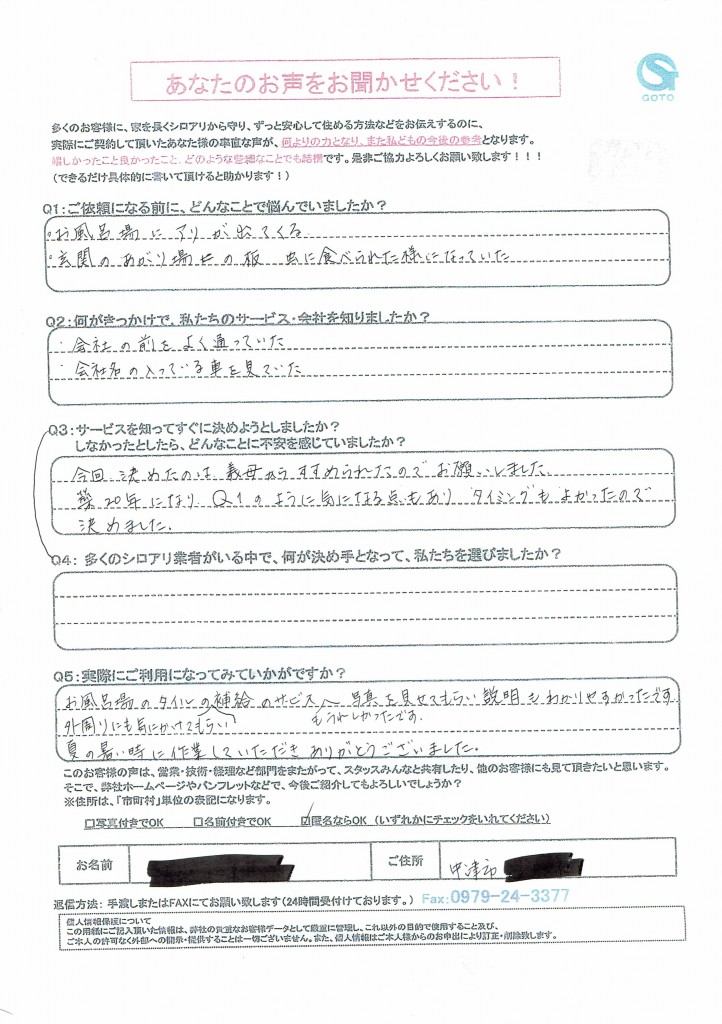 あなたのお声をお聞かせください！
GOTO
多くのお客様に、家を長くシロアリから守り、ずっと安心して住める方法などをお伝えするのに、
実際にご契約して頂いたあなた様の率直な声が、何よりの力となり、また私どもの今後の参考となります。
嬉しかったこと良かったこと、どのような些細なことでも結構です。是非ご協力よろしくお願い致します！！！
（できるだけ具体的に書いて頂けると助かります！）
Q1：ご依頼になる前に、どんなことで悩んでいましたか？
・お風呂場にアリが出てくる
・玄関のあがり場の板 虫に食べられた様になっていた
Q2：何がきっかけで、私たちのサービス・会社を知りましたか？
・会社の前をよく通っていた
・会社名の入っている車を見ていた
Q3：サービスを知ってすぐに決めようとしましたか？
しなかったとしたら、どんなことに不安を感じていましたか？
今回決めたのは義母からすすめられたのでお願いしました
築20年になり Q1のように気になる点もあり タイミングもよかったので
決めました。
Q4：多くのシロアリ業者がいる中で、何が決め手となって、私たちを選びましたか？
Q5：実際にご利用になってみていかがですか？
お風呂場のタイルの補給のサービス 写真を見せてもらい説明もわかりやすかったです
外周りにも気にかけてもらい もうれしかったです．
夏の暑い時に作業していただきありがとうございました．
このお客様の声は、営業・技術・経理など部門をまたがって、スタッスみんなと共有したり、他のお客様にも見て頂きたいと思います。
そこで、弊社ホームページやパンフレットなどで、今後ご紹介してもよろしいでしょうか？
※住所は、「市町村」単位の表記になります。
□写真付きでOK □名前付きでOK ☑匿名ならOK（いずれかにチェックをいれてください）
お名前 ご住所 中津市
返信方法：手渡しまたはFAXにてお願い致します（24時間受付けております。） Fax:0979-24-3377
個人情報保護について
この用紙にご記入頂いた情報は、弊社の貴重なお客様データとして厳重に管理し、これ以外の目的で使用すること及び、
ご本人の許可なく外部への開示・提供することは一切ございません。また、個人情報はご本人様からのお申出により訂正・削除致します。